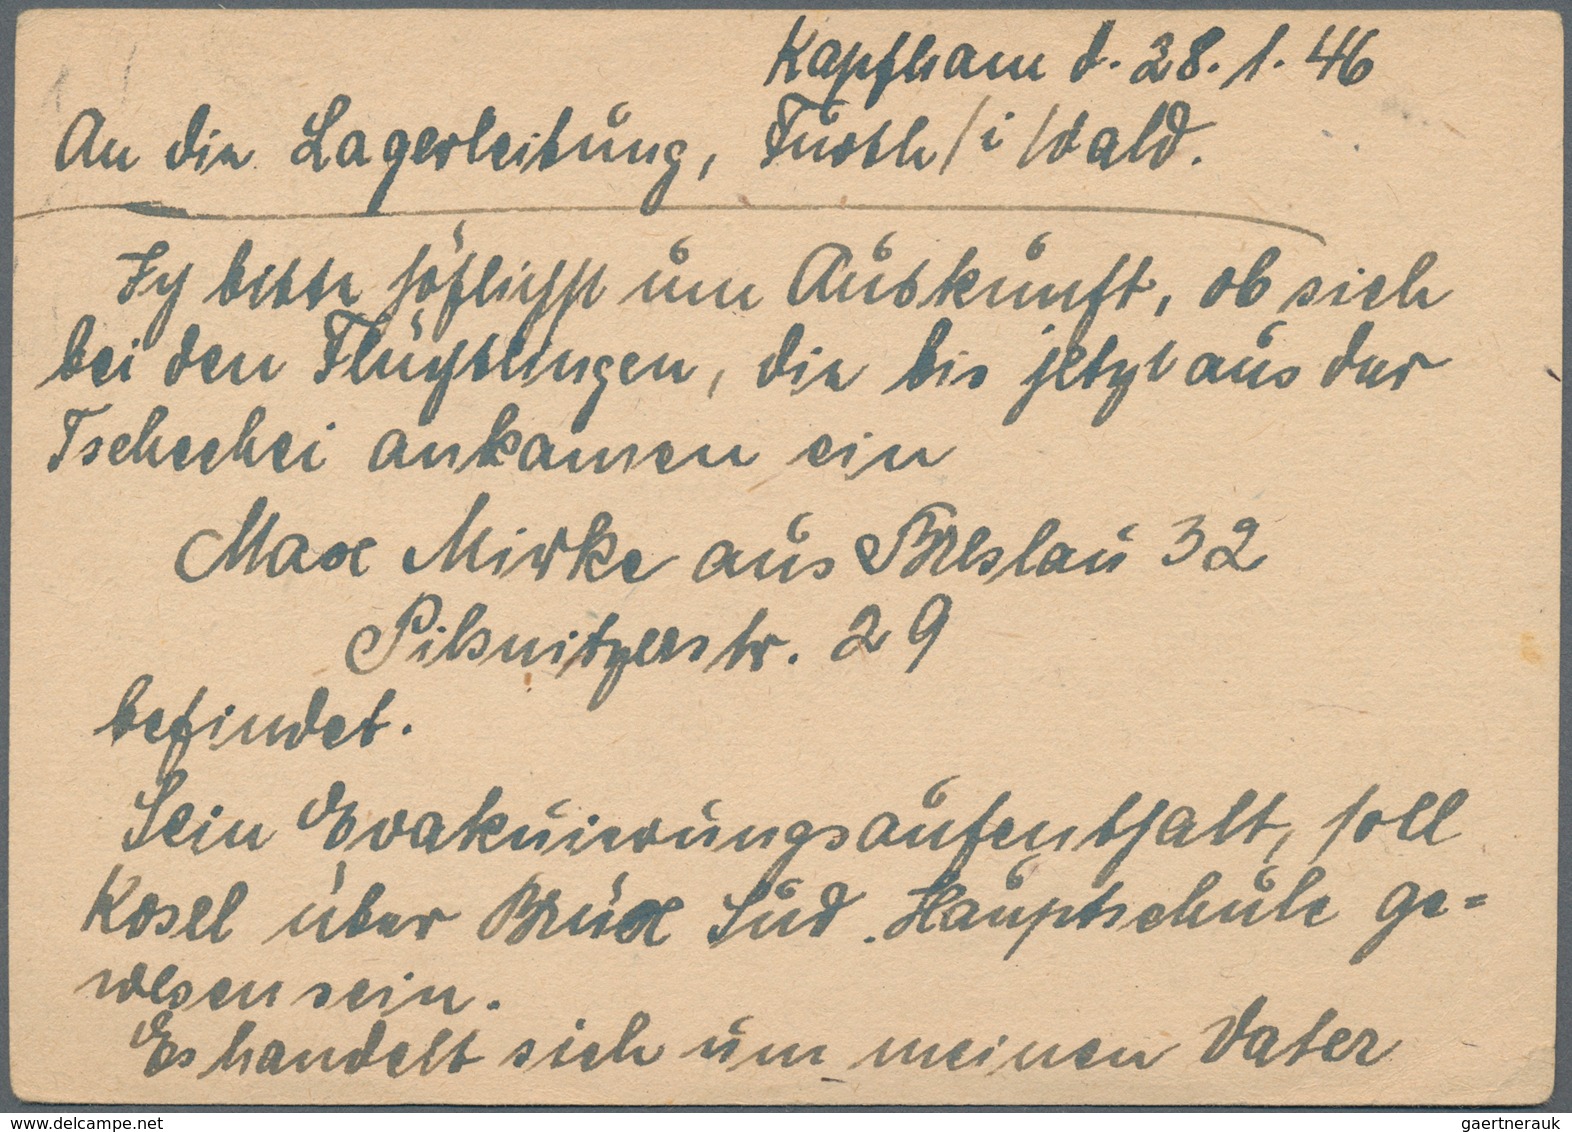 Kapfham d. 28.1.46
An die Lagerleitung, Furth/i/Wald.
Ich bitte höflichst um Auskunft, ob sich
bei den Flüchtlingen, die bis jetzt aus der
Tschechei ankamen ein
Max Mirke aus Breslau 32
Pilsnitzerstr. 29
befindet.
Sein Evakuierungsaufenthalt, soll
Kosel über Brüx Süd. Hauptschule ge=
wesen sein.
Es handelt sich um meinen Vater
www.delcampe.net
gaertnerauk